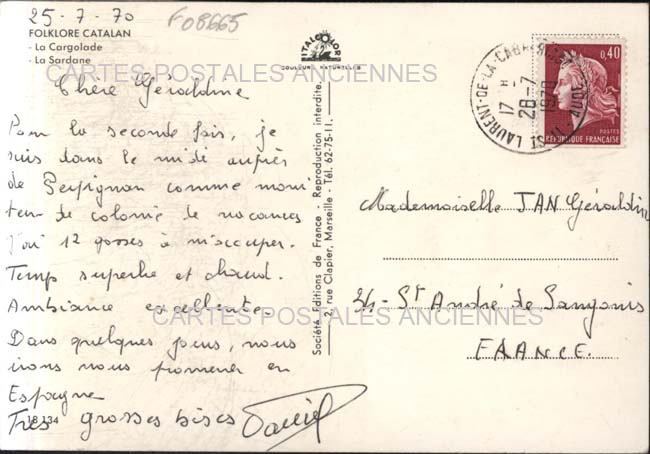 25-7-70
F08665
FOLKLORE CATALAN
- La Cargolade
- La Sardane
CARTES POSTALES ANCIENNES
Chère Géraldine
Pour la seconde fois, je
suis dans le midi auprès
de Perpignan comme moni
teur de colonie de vacances
J'ai 12 gosses à m'occuper.
Temps superbe et chaud.
Ambiance excellente.
Dans quelques jours, nous
irons nous promener en
Espagne
Très grosses bises Daniel
18.134
ITALCOLOR
COULEURS NATURELLES
Société Editions de France - Reproduction interdite.
2, rue Clapier, Marseille - Tél. 62-75-11.
ST LAURENT-DE-LA-CABRERISSE
AUDE
17 H
28-7
1970
0,40
POSTES
REPUBLIQUE FRANÇAISE
Mademoiselle JAN Géraldine
34 - St André de Sangonis
FRANCE.
CARTES POSTALES ANCIENNES